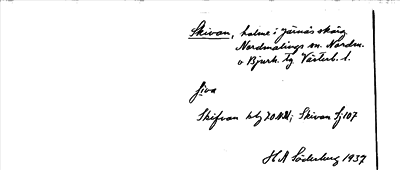 Skivan, holme i Järnäs skärg
Nordmalings sn. Nordm.
o Bjurh. tg Västerb. l.
Skifvan
Skivan Sj 107
H. A Söderberg 1937